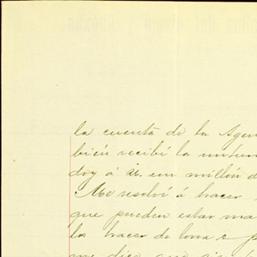 la cuenta de la Agen
bién recibí la
doy á U. un millón d
Me resolví á hacer
que pueden estar ma
la hacer de lona é p
me dice que